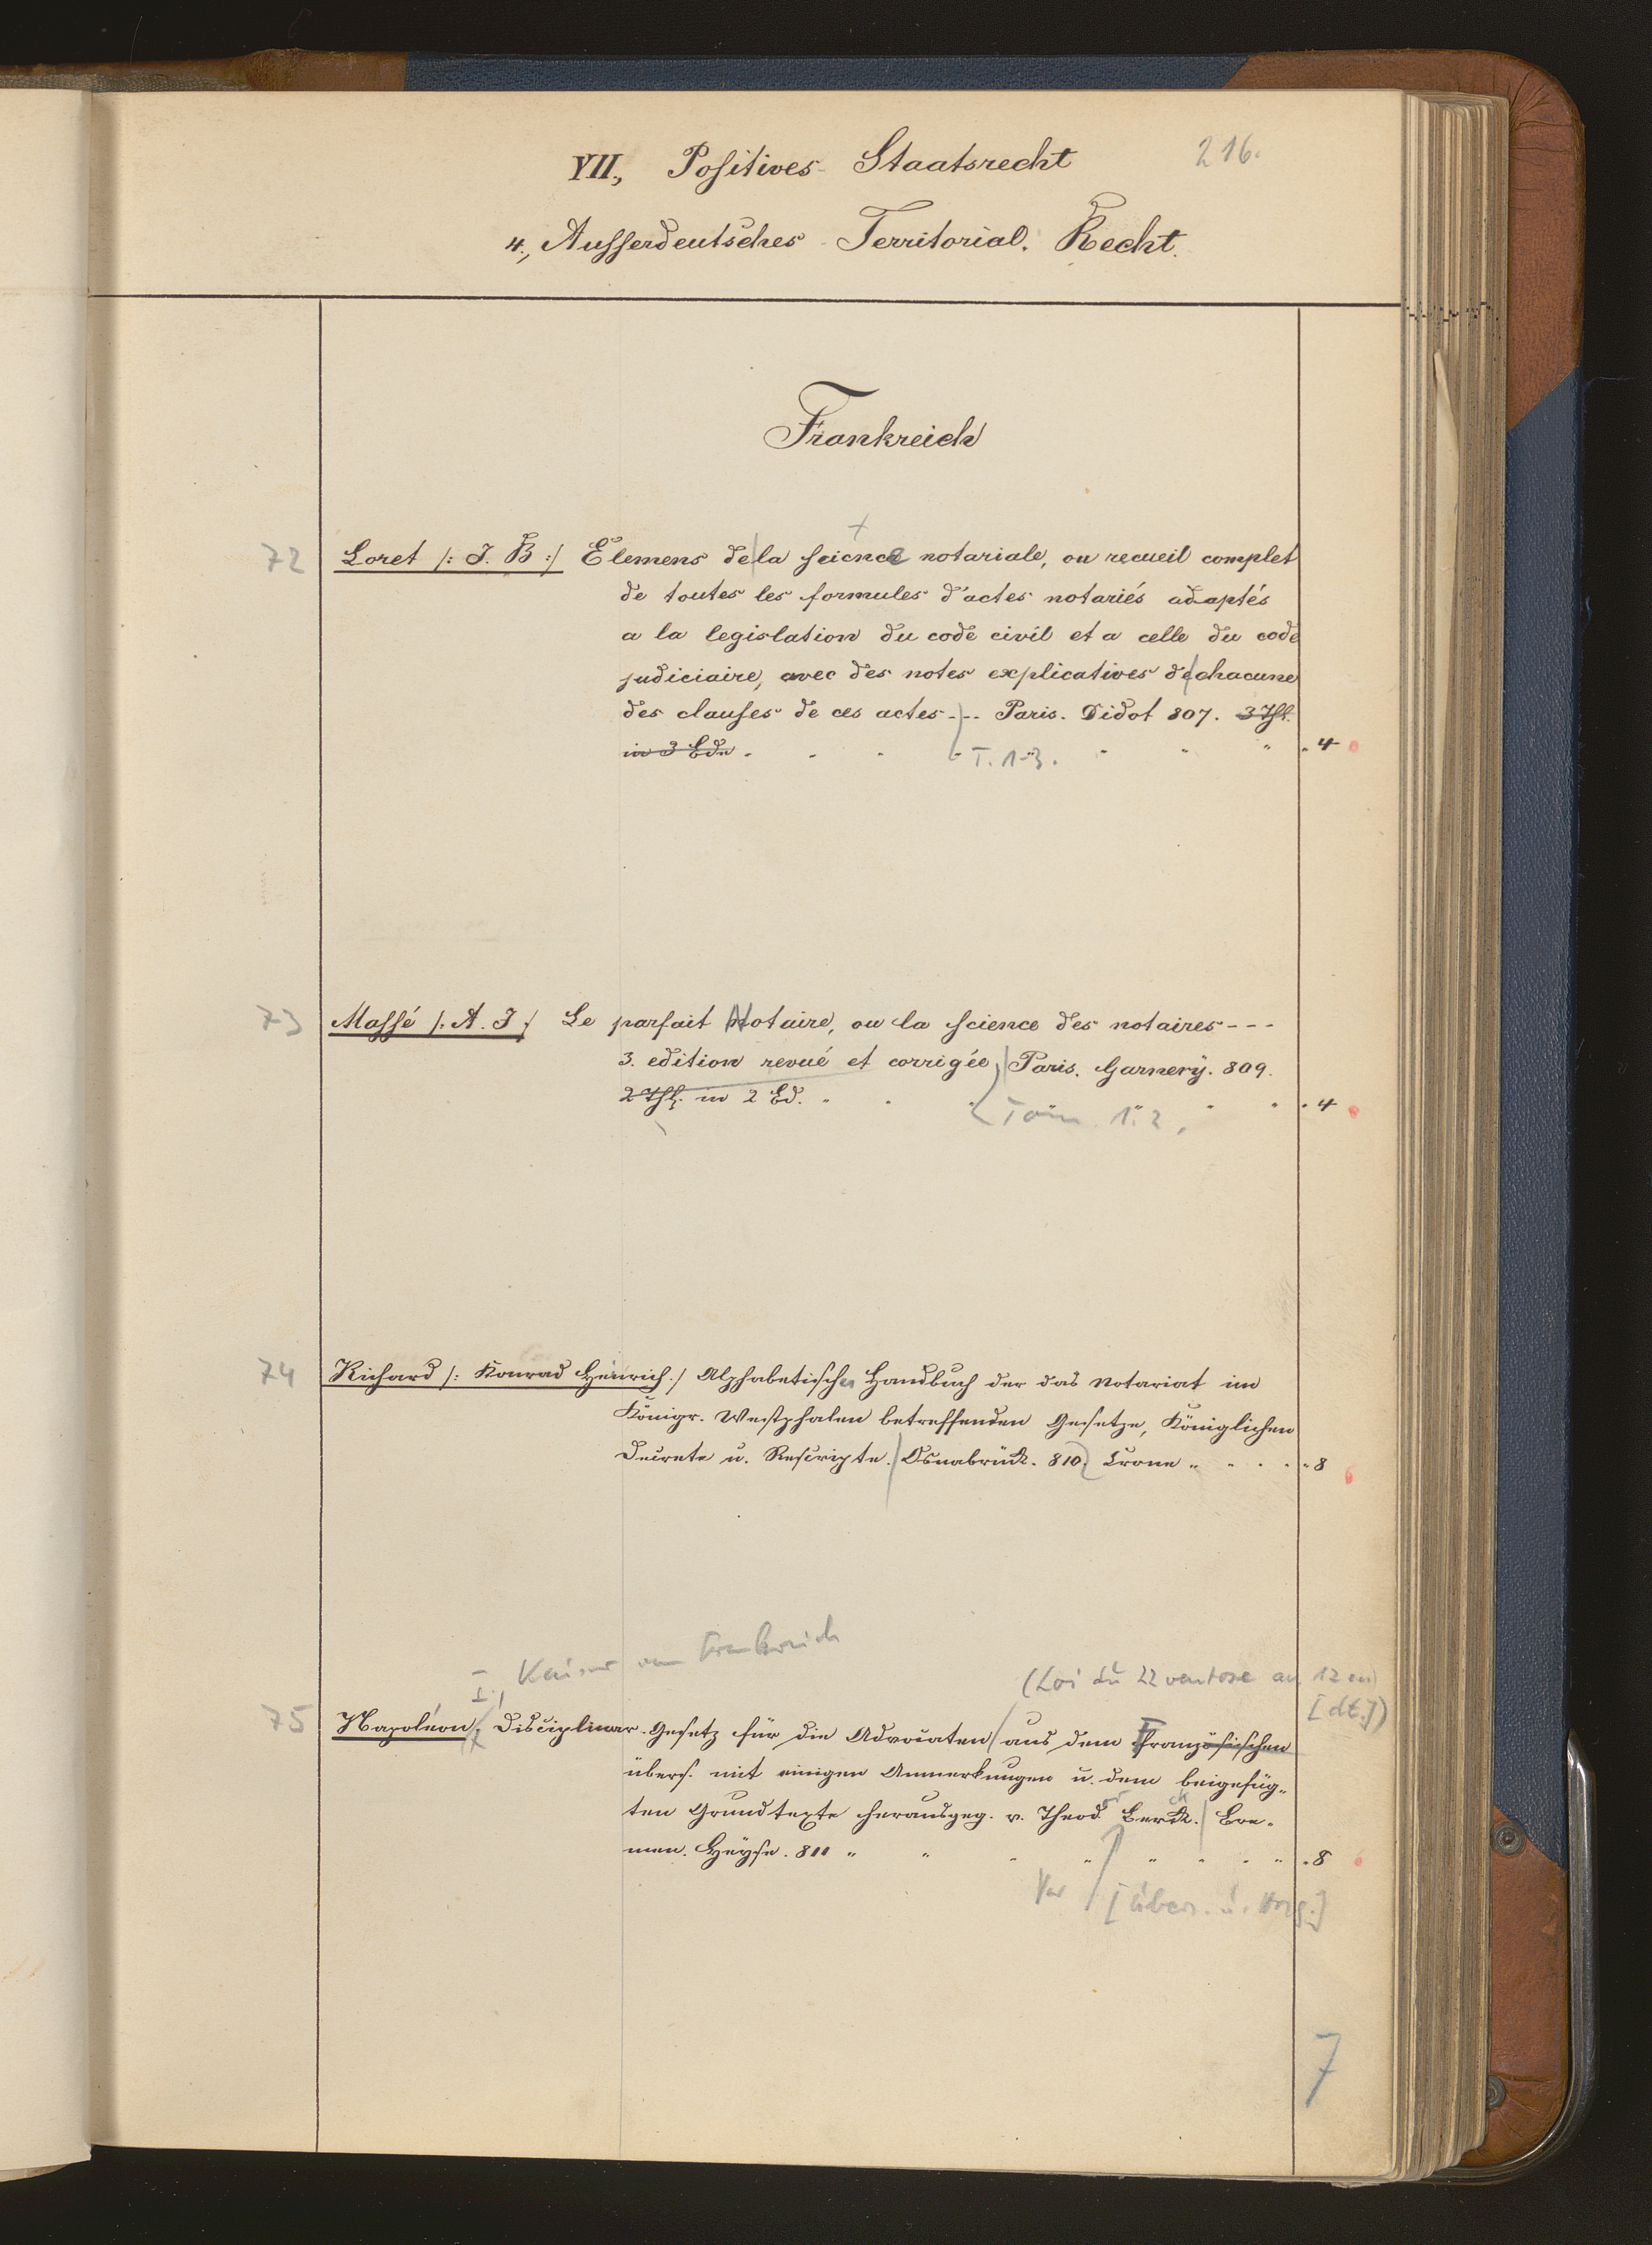 216.
VII., Positives Staatsrecht
4., Ausserdeutsches Territorial. Recht.
Frankreich
72 Loret /: J. B :/ Elemens de la science notariale, ou recueil complet
de toutes les formules d'actes notariés adaptés
a la legislation du code civil et a celle du code
judiciaire, avec des notes explicatives de chacune
des clauses de ces actes --- Paris. Didot 807. 3 Thl.
in 3 Bdn T. 1-3. 4
73 Massé /. A. J / Le parfait Notaire, ou la science des notaires ---
3. edition revué et corrigée Paris. Garnerÿ. 809.
2 Thl. in 2 Bd. Tom 1. 2. 4
74 Richard /: Konrad Heinrich :/ Alphabetisches Handbuch der das Notariat im
Königr. Westphalen betreffenden Gesetze, Königlichen
Decrete u. Rescripte. Osnabrück. 810. Crone 8
I., Kaiser von Frankreich
(Loi du 22 ventose an 12
[dt.])
75 Napoléon, Disciplinar-Gesetz für die Advocaten aus dem Französischen
übers. mit einigen Anmerkungen u. dem beigefüg-
ten Grundtexte herausgeg. v. Theod. Berck. Bre-
men. Heyse. 811 8
[Übers. u. Hrsg.]
7